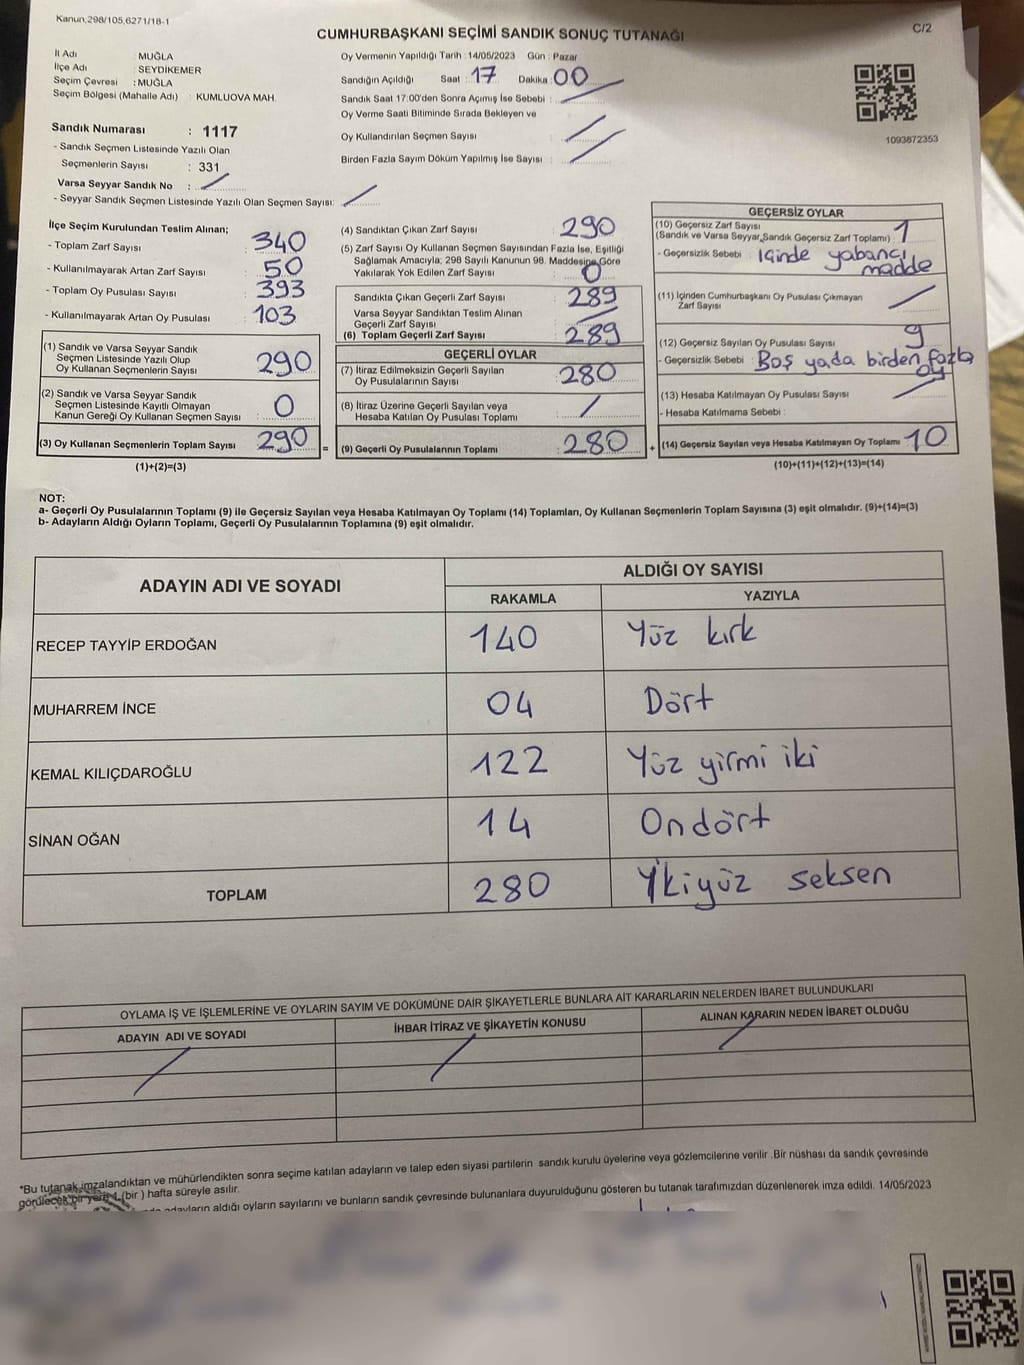 Kanun,298/105,6271/18-1
CUMHURBAŞKANI SEÇİMİ SANDIK SONUÇ TUTANAĞI
C/2
İl Adı : MUĞLA
İlçe Adı : SEYDİKEMER
Seçim Çevresi : MUĞLA
Seçim Bölgesi (Mahalle Adı) : KUMLUOVA MAH.
Oy Vermenin Yapıldığı Tarih : 14/05/2023 Gün : Pazar
Sandığın Açıldığı Saat : 17 Dakika : 00
Sandık Saat 17:00'den Sonra Açımış İse Sebebi :
Oy Verme Saati Bitiminde Sırada Bekleyen ve
Oy Kullandırılan Seçmen Sayısı :
Birden Fazla Sayım Döküm Yapılmış İse Sayısı :
1093872353
Sandık Numarası : 1117
- Sandık Seçmen Listesinde Yazılı Olan
Seçmenlerin Sayısı : 331
Varsa Seyyar Sandık No :
- Seyyar Sandık Seçmen Listesinde Yazılı Olan Seçmen Sayısı:
İlçe Seçim Kurulundan Teslim Alınan;
- Toplam Zarf Sayısı : 340
- Kullanılmayarak Artan Zarf Sayısı : 50
- Toplam Oy Pusulası Sayısı : 393
- Kullanılmayarak Artan Oy Pusulası : 103
(1) Sandık ve Varsa Seyyar Sandık
Seçmen Listesinde Yazılı Olup
Oy Kullanan Seçmenlerin Sayısı : 290
(2) Sandık ve Varsa Seyyar Sandık
Seçmen Listesinde Kayıtlı Olmayan
Kanun Gereği Oy Kullanan Seçmen Sayısı : 0
(3) Oy Kullanan Seçmenlerin Toplam Sayısı : 290
(1)+(2)=(3)
=
(4) Sandıktan Çıkan Zarf Sayısı : 290
(5) Zarf Sayısı Oy Kullanan Seçmen Sayısından Fazla İse, Eşitliği
Sağlamak Amacıyla; 298 Sayılı Kanunun 98. Maddesine Göre
Yakılarak Yok Edilen Zarf Sayısı : 0
Sandıkta Çıkan Geçerli Zarf Sayısı : 289
Varsa Seyyar Sandıktan Teslim Alınan
Geçerli Zarf Sayısı
(6) Toplam Geçerli Zarf Sayısı : 289
GEÇERLİ OYLAR
(7) İtiraz Edilmeksizin Geçerli Sayılan
Oy Pusulalarının Sayısı : 280
(8) İtiraz Üzerine Geçerli Sayılan veya
Hesaba Katılan Oy Pusulası Toplamı :
(9) Geçerli Oy Pusulalarının Toplamı : 280
+
GEÇERSİZ OYLAR
(10) Geçersiz Zarf Sayısı
(Sandık ve Varsa Seyyar Sandık Geçersiz Zarf Toplamı) : 1
- Geçersizlik Sebebi : içinde yabancı
madde
(11) İçinden Cumhurbaşkanı Oy Pusulası Çıkmayan
Zarf Sayısı
(12) Geçersiz Sayılan Oy Pusulası Sayısı : 9
- Geçersizlik Sebebi : Boş yada birden fazla
oy
(13) Hesaba Katılmayan Oy Pusulası Sayısı :
- Hesaba Katılmama Sebebi :
(14) Geçersiz Sayılan veya Hesaba Katılmayan Oy Toplamı : 10
(10)+(11)+(12)+(13)=(14)
NOT:
a- Geçerli Oy Pusulalarının Toplamı (9) ile Geçersiz Sayılan veya Hesaba Katılmayan Oy Toplamı (14) Toplamları, Oy Kullanan Seçmenlerin Toplam Sayısına (3) eşit olmalıdır. (9)+(14)=(3)
b- Adayların Aldığı Oyların Toplamı, Geçerli Oy Pusulalarının Toplamına (9) eşit olmalıdır.
ADAYIN ADI VE SOYADI
ALDIĞI OY SAYISI
RAKAMLA YAZIYLA
RECEP TAYYİP ERDOĞAN 140 Yüz kırk
MUHARREM İNCE 04 Dört
KEMAL KILIÇDAROĞLU 122 Yüz yirmi iki
SİNAN OĞAN 14 Ondört
TOPLAM 280 İkiyüz seksen
OYLAMA İŞ VE İŞLEMLERİNE VE OYLARIN SAYIM VE DÖKÜMÜNE DAİR ŞİKAYETLERLE BUNLARA AİT KARARLARIN NELERDEN İBARET BULUNDUKLARI
ADAYIN ADI VE SOYADI İHBAR İTİRAZ VE ŞİKAYETİN KONUSU ALINAN KARARIN NEDEN İBARET OLDUĞU
*Bu tutanak imzalandıktan ve mühürlendikten sonra seçime katılan adayların ve talep eden siyasi partilerin sandık kurulu üyelerine veya gözlemcilerine verilir .Bir nüshası da sandık çevresinde
görülecek bir yere 1 (bir ) hafta süreyle asılır.
adayların aldığı oyların sayılarını ve bunların sandık çevresinde bulunanlara duyurulduğunu gösteren bu tutanak tarafımızdan düzenlenerek imza edildi. 14/05/2023